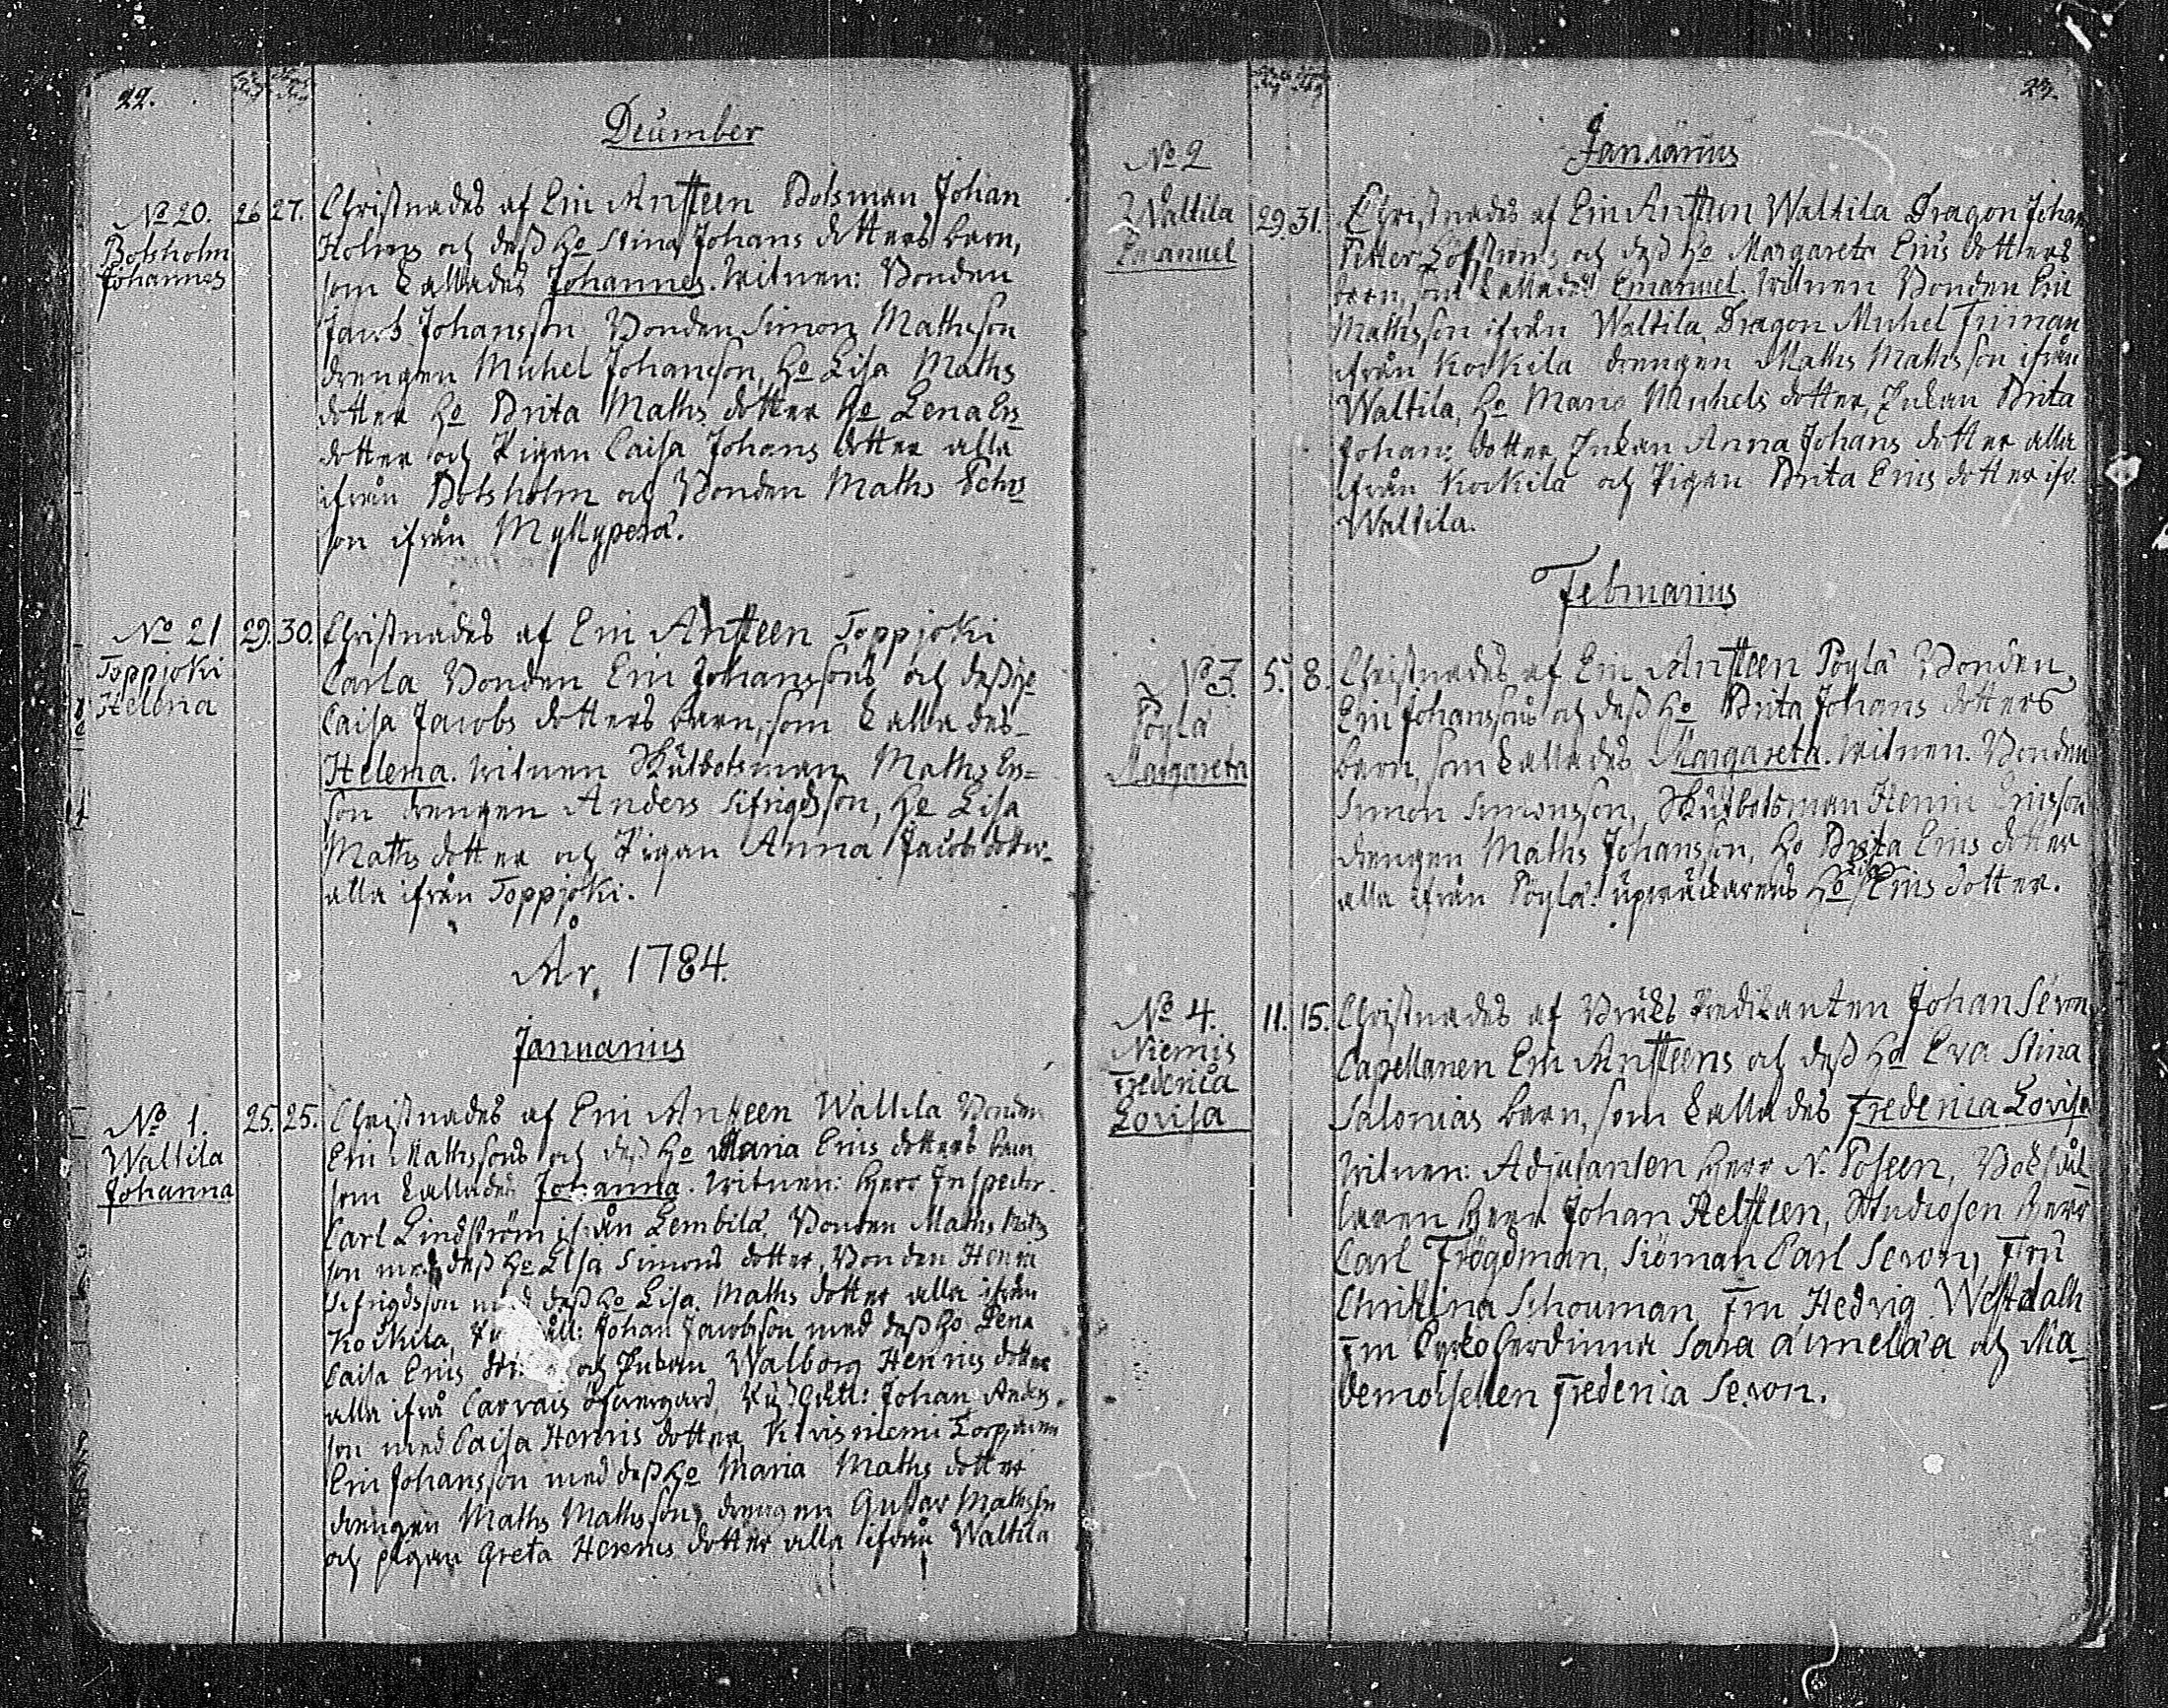 22.
December
No 20. 26 27. Christnades af Eric Antteen Botsman Johan
Botsholm Holms och dess ho Stina Johans dotters barn,
Johannes som kallades Johannes. Witnen: Bonden
Jacob Johansson Bonden Simon Mathsson
drengen Michel Johansson, ho Lisa Maths
dotter ho Brita Maths dotter ho Lena Ers
dotter och Pigan Caisa Johans dotter alla
ifrån Botsholm och Bonden Maths Pehrs
son ifrån Myllyperä.
No 21 29. 30. Christnades af Eric Antteen Toppjoki
Toppjoki Carla Bonden Eric Johanssons och dess ho
Helena Caisa Jacobs dotters barn, som kallades
Helena. Witnen Skutbotsman Maths Ers=
son drengen Anders Sifrigdsson, ho Lisa
Maths dotter och Pigan Anna Jacobs dotter
alla ifrån Toppjoki.
År, 1784.
Januarius
No 1. 25. 25. Christnades af Eric Antteen Waltila Bonden
Waltila Eric Mathssons och dess ho Maria Erics dotters barn
Johanna som kallades Johanna. Witnen: Herr Inspector
Carl Lindström ifrån Lembilä, Bonden Maths Mats
son med dess ho Lisa Simons dotter, Bonden Henric
Sifrigdsson med dess ho Lisa Maths dotter alla ifrån
Koikila, Johan Jacobsson med dess ho Lena
Caisa Erics och Enkan Walborg Henrics dotter
alla ifrå Carvais öfvergård, Johan Anders
son med Caisa Henrics dotter, Kivisniemi
Eric Johansson med dess ho Maria Maths dotter
drengen Maths Mathsson, drengen Gustav Mathsson
och pigan Greta Henrics dotter alla ifrån Waltila
23.
Januarius
No 2
Waltila 29. 31. Christnades af Eric Antteen Waltila Dragon Johan
Emanuel Petter Löfströms och dess ho Margareta Erics dotters
barn, som kallades Emanuel. Witnen Bonden Eric
Mathsson ifrån Waltila, Dragon Michel Friman
ifrån Koikila drengen Maths Mathsson ifrån
Waltila, ho Maria Michels dotter, Enkan Brita
Johans dotter, Enkan Anna Johans dotter alla
ifrån Koikila och Pigan Brita Erics dotter ifr.
Waltila.
Februarius
No 3. 5. 8. Christnades af Eric Antteen Pöylä Bonden
Pöylä Eric Johanssons och dess ho Brita Johans dotters
Margareta barn, som kallades Margareta. Witnen. Bonden
Simon Simonsson, Skutbotsman Henric Ericsson
drengen Maths Johansson, ho Brita Erics dotter
alla ifrån Pöylä. ho Lisa Erics dotter.
No 4. 11. 15. Christnades af Bruks Predikanten Johan Seron
Niemis Capellanen Eric Antteens och dess ho Eva Stina
Frederica Salonias barn, som kallades Frederica Lovisa
Lovisa Witnen: Adjutanten Herr N. Poseen, Bokhål
laren Herr Johan Heltteen, Studiosen Herr
Carl Frögdman, Siöman Carl Seron, Fru
Christina Schouman, Fru Hedvig Westdalh
Fru Kyrkoherdinna Sara Aimelaea och Ma
demoisellen Frederica Seron.